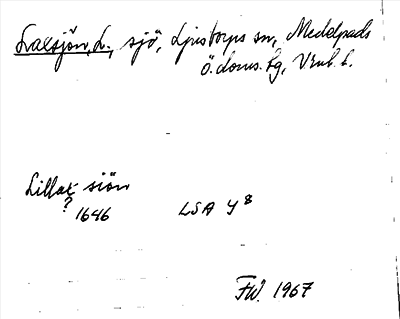 Laxsjön, L., sjö, Ljustorps sn, Medelpads
ö. doms. tg, Vnl. l.
Lillax siön
? 1646 LSA Y 8
FW. 1967